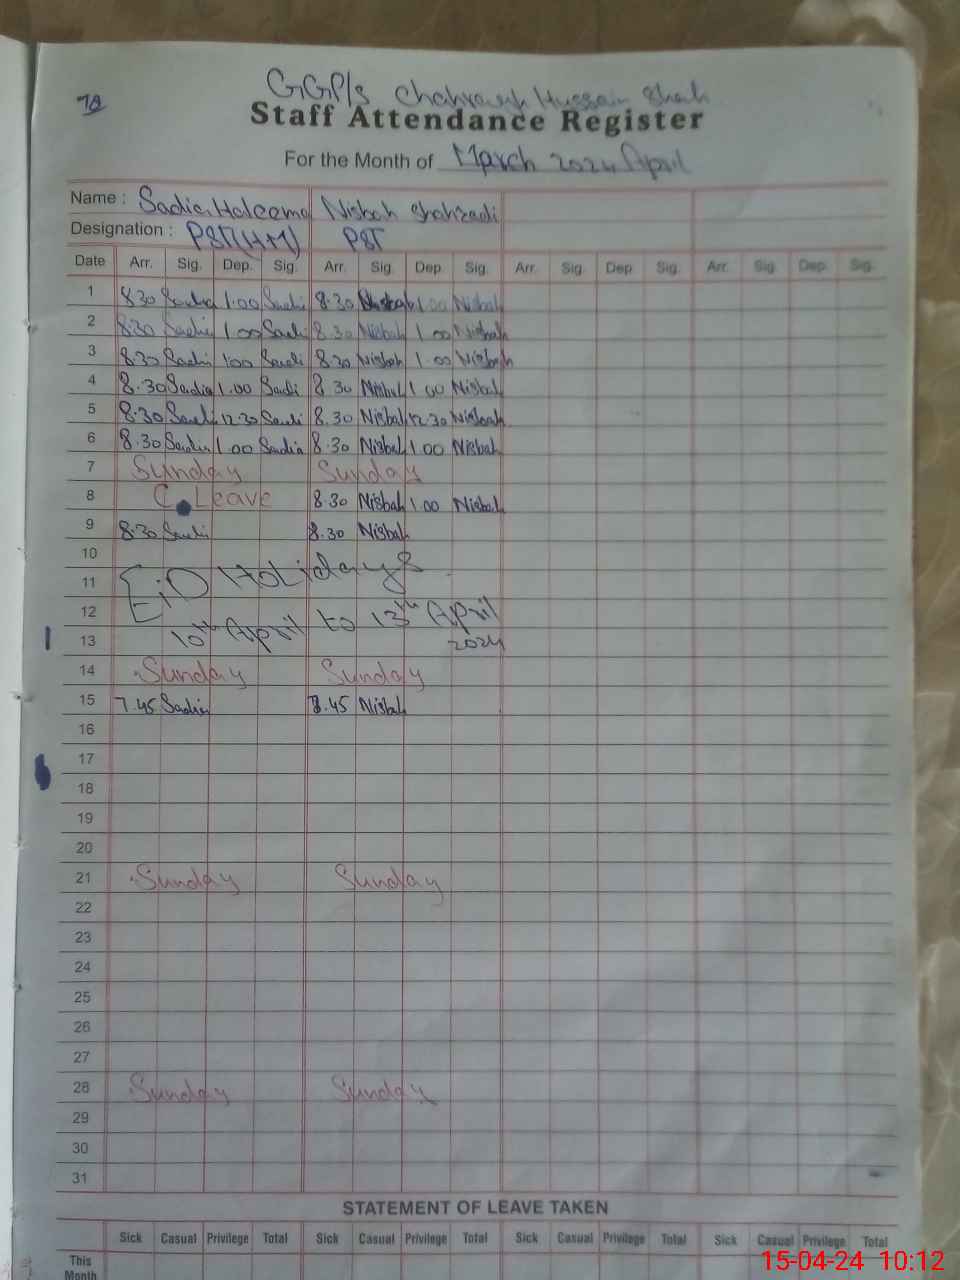 78
GGP/S Chahrawah Hussain Shah
Staff Attendance Register
For the Month of March 2024 April
Name : Sadia Haleema Nisbah Shahzadi
Designation : PST(H+M) PST
Date Arr. Sig. Dep. Sig. Arr. Sig. Dep. Sig. Arr. Sig. Dep. Sig. Arr. Sig. Dep. Sig.
1 8.30 Sadia 1.00 Sadi 8.30 Nisbah 1.00 Nisbah
2 8.30 Sadia 1.00 Sadi 8.30 Nisbah 1.00 Nisbah
3 8.30 Sadia 1.00 Sadi 8.30 Nisbah 1.00 Nisbah
4 8.30 Sadia 1.00 Sadi 8.30 Nisbah 1.00 Nisbah
5 8.30 Sadi 12.30 Sadi 8.30 Nisbah 12.30 Nisbah
6 8.30 Sadia 1.00 Sadia 8.30 Nisbah 1.00 Nisbah
7 Sunday Sunday
8 C.Leave 8.30 Nisbah 1.00 Nisbah
9 8.30 Sadi 8.30 Nisbah
10
11 EiD HoLidays
12
13 10th April to 13th April 2024
14 Sunday Sunday
15 7.45 Sadia 7.45 Nisbah
16
17
18
19
20
21 Sunday Sunday
22
23
24
25
26
27
28 Sunday Sunday
29
30
31
STATEMENT OF LEAVE TAKEN
Sick Casual Privilege Total Sick Casual Privilege Total Sick Casual Privilege Total Sick Casual Privilege Total
This
Month
15-04-24 10:12